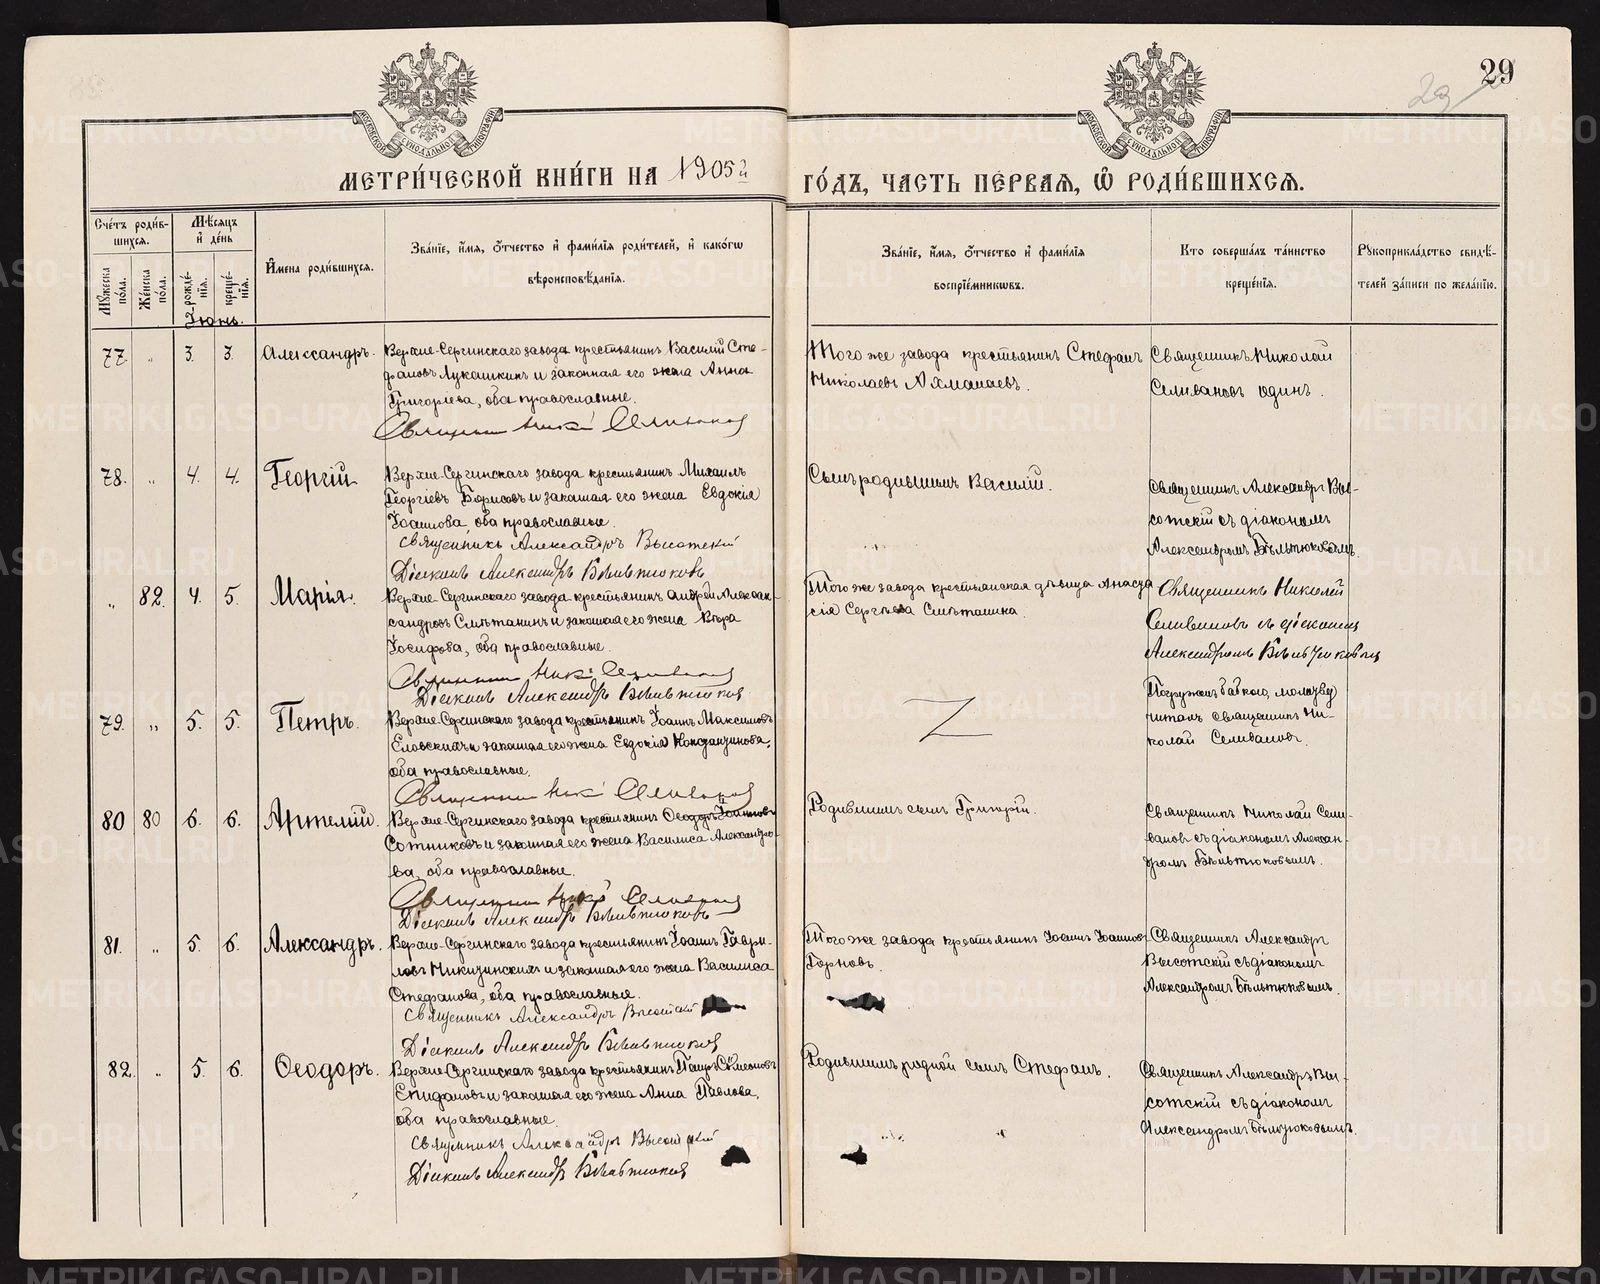 29
29
МЕТРИ́ЧЕСКОЙ КНИ́ГИ НА 1905й ГО́ДЪ, ЧАСТЬ ПЕ́РВАЯ, Ѽ РОДИ́ВШИХСЯ.
Сче́тъ роди́вшихся.
Мѣ́сяцъ и де́нь
И҆мена роди́вшихся.
Зва́нїе, и҆́мя, ѻ҆́тчество и҆ фами́лїя роди́телей, и҆ како́гѡ
вѣроисповѣ́данїя.
Зва́нїе, и҆́мя, ѻ҆́тчество и҆ фами́лїя
воспрїе́мникѡвъ.
Кто соверша́лъ та́инство
креще́нїя.
Рꙋкоприкла́дство свидѣ́-
телей за́писи по жела́нїю.
Мꙋ́жеска по́ла.
Же́нска по́ла.
рожде́нїя.
креще́нїя.
Іюнь.
77. „ 3. 3. Александръ.
Верхне-Сергинскаго завода крестьянинъ Василій Сте-
фановъ Лукашкинъ и законная его жена Анна
Григорьева, оба православные.
Священникъ Ник. Селивановъ
Того же завода крестьянинъ Стефанъ
Николаевъ
Священникъ Николай
Селивановъ одинъ.
78. „ 4. 4. Георгій
Верхне-Сергинскаго завода крестьянинъ Михаилъ
Георгіевъ Борисовъ и законная его жена Евдокія
Іоаннова, оба православные.
Священникъ Александръ Высотскій
Діаконъ Александръ Бѣльтюковъ
Сынъ родившимъ Василій.
Священникъ Александръ Вы-
сотскій съ діакономъ
Александромъ Бѣльтюковымъ.
„ 82. 4. 5. Марія.
Верхне-Сергинскаго завода крестьянинъ Андрей Алексан-
сандровъ Смѣтанинъ и законная его жена Вѣра
Іосифова, оба православные.
Священникъ Ник. Селивановъ
Діаконъ Александръ Бѣльтюковъ
Того же завода крестьянская дѣвица Анаста
сія Сергѣева Смѣтанина.
Священникъ Николай
Селивановъ съ діакономъ
Александромъ Бѣльтюковымъ
79. „ 5. 5. Петръ.
Верхне-Сергинскаго завода крестьянинъ Іоаннъ Максимовъ
Еловскихъ и законная его жена Евдокія Константинова,
оба православные.
Священникъ Ник. Селивановъ
Z
Погружен бабкою, молитву
читалъ священникъ Ни-
колай Селивановъ.
80 80 6. 6. Артемій.
Верхне-Сергинскаго завода крестьянинъ Ѳеодоръ Іоанновъ
Сотниковъ и законная его жена Василиса Александро-
ва, оба православные.
Священникъ Ник. Селивановъ
Діаконъ Александръ Бѣльтюковъ
Родившимъ сынъ Григорій.
Священникъ Николай Сели-
вановъ съ діакономъ Алексан-
дромъ Бѣльтюковымъ.
81. „ 5. 6. Александръ.
Верхне-Сергинскаго завода крестьянинъ Іоаннъ Гаври-
ловъ Никитинскихъ и законная его жена Василиса
Стефанова, оба православные.
Священникъ Александръ Высотскій
Діаконъ Александръ Бѣльтюковъ
Того же завода крестьянинъ Іоаннъ Іоанновъ
Горновъ.
Священникъ Александръ
Высотскій съ діакономъ
Александромъ Бѣльтюковымъ.
82. „ 5. 6. Ѳеодоръ.
Верхне-Сергинскаго завода крестьянинъ Петръ Сѵмеоновъ
Епифановъ и законная его жена Анна Павлова,
оба православные.
Священникъ Александръ Высотскій
Діаконъ Александръ Бѣльтюковъ
Родившимъ родной сынъ Стефанъ.
Священникъ Александръ Вы-
сотскій съ діакономъ
Александромъ Бѣльтюковымъ.
METRIKI.GASO-URAL.RU